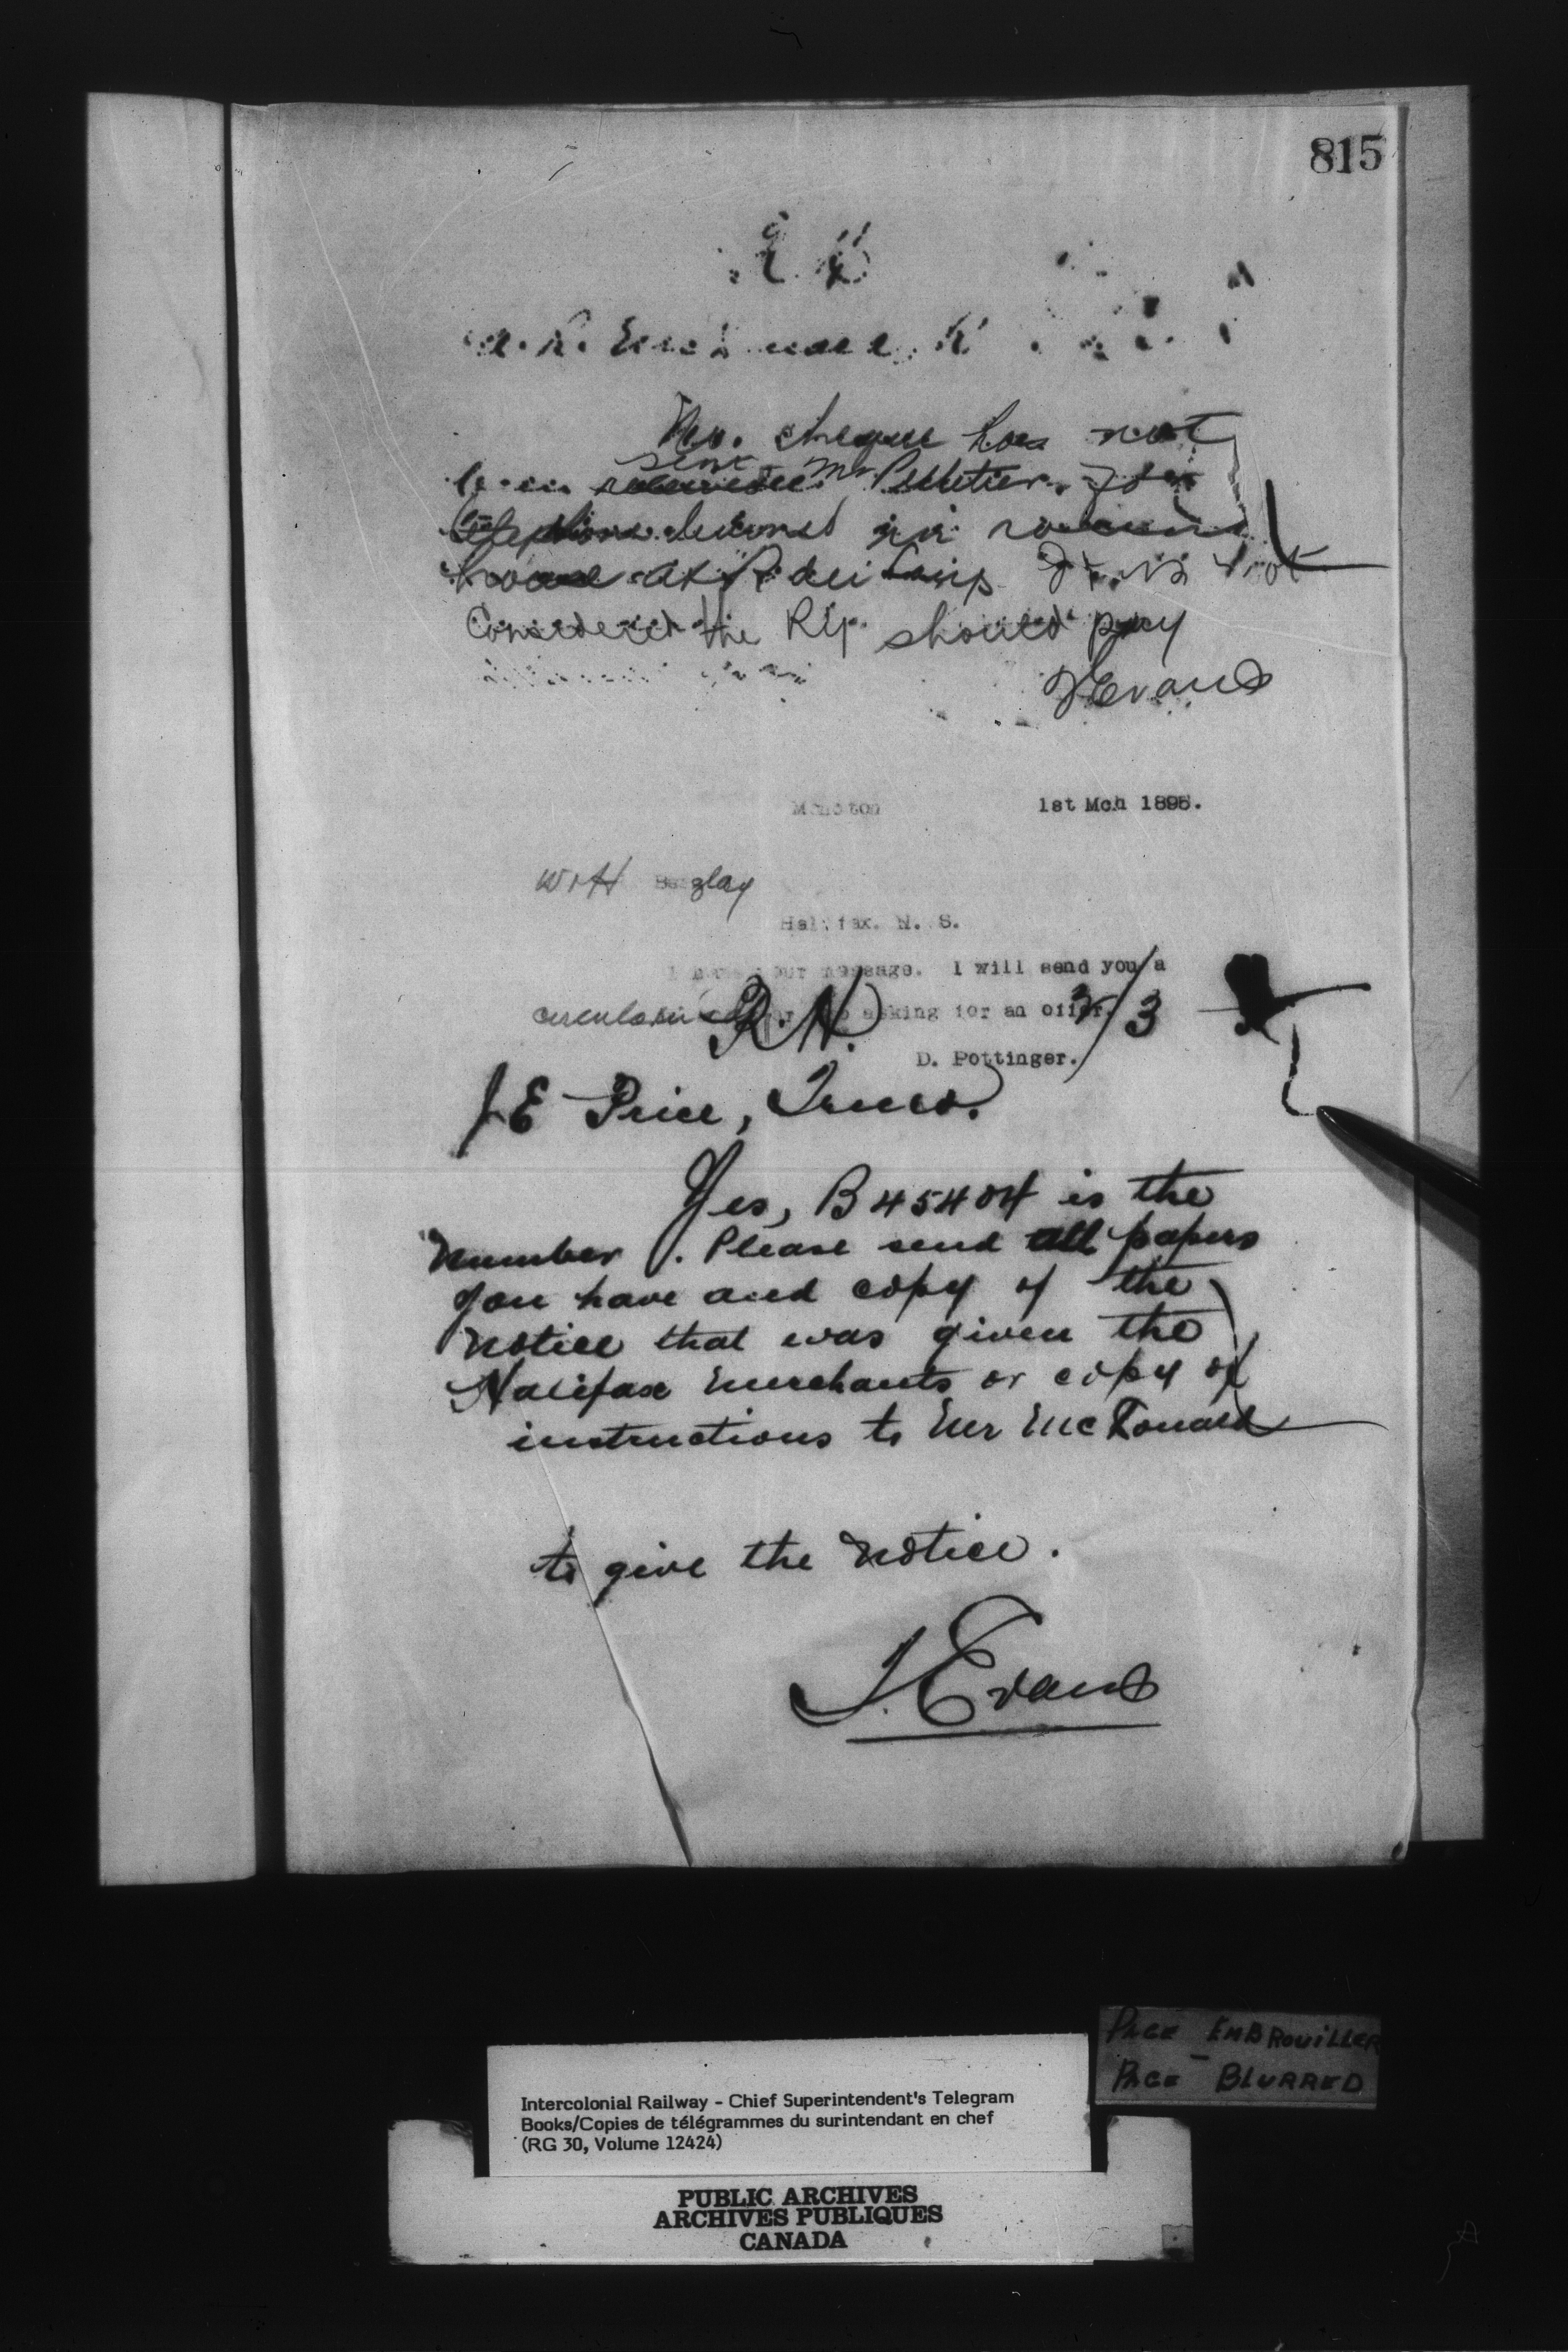 815
No. cheque has not
been sent Mr Pelletier for
telephone in round
house at R du Loup It is not
considered the Ry should pay
TEvans
Moncton 1st Mch 1895.
W H
Halifax. N. S.
I have your message. I will send you a
circular asking for an offer.
D. Pottinger.
R.N. 2/3
J E Price, Truro.
Yes, B 45404 is the
number. Please send all papers
you have and copy of the
notice that was given the
Halifax merchants or copy of
instructions to Mr McDonald
to give the notice.
T. Evans
PAGE EMBROUILLER
PAGE BLURRED
Intercolonial Railway - Chief Superintendent's Telegram
Books/Copies de télégrammes du surintendant en chef
(RG 30, Volume 12424)
PUBLIC ARCHIVES
ARCHIVES PUBLIQUES
CANADA